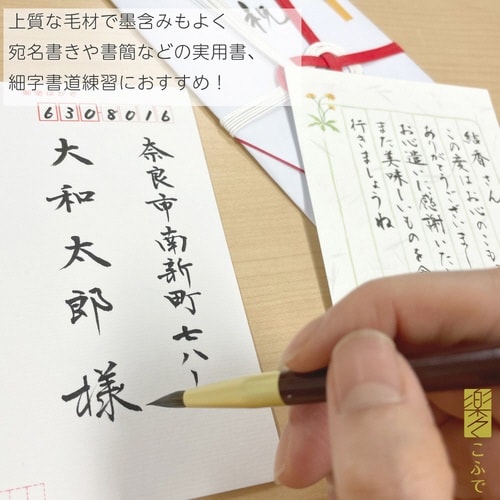 上質な毛材で墨含みもよく
宛名書きや書簡などの実用書、
細字書道練習におすすめ！
祝
6308016
奈良市南新町七八ー
大和太郎様
結香さん
この度はお心のこも
ありがとうございまし
お心遣いに感謝いた
また美味しいものを食
行きましょうね
楽々
こふで